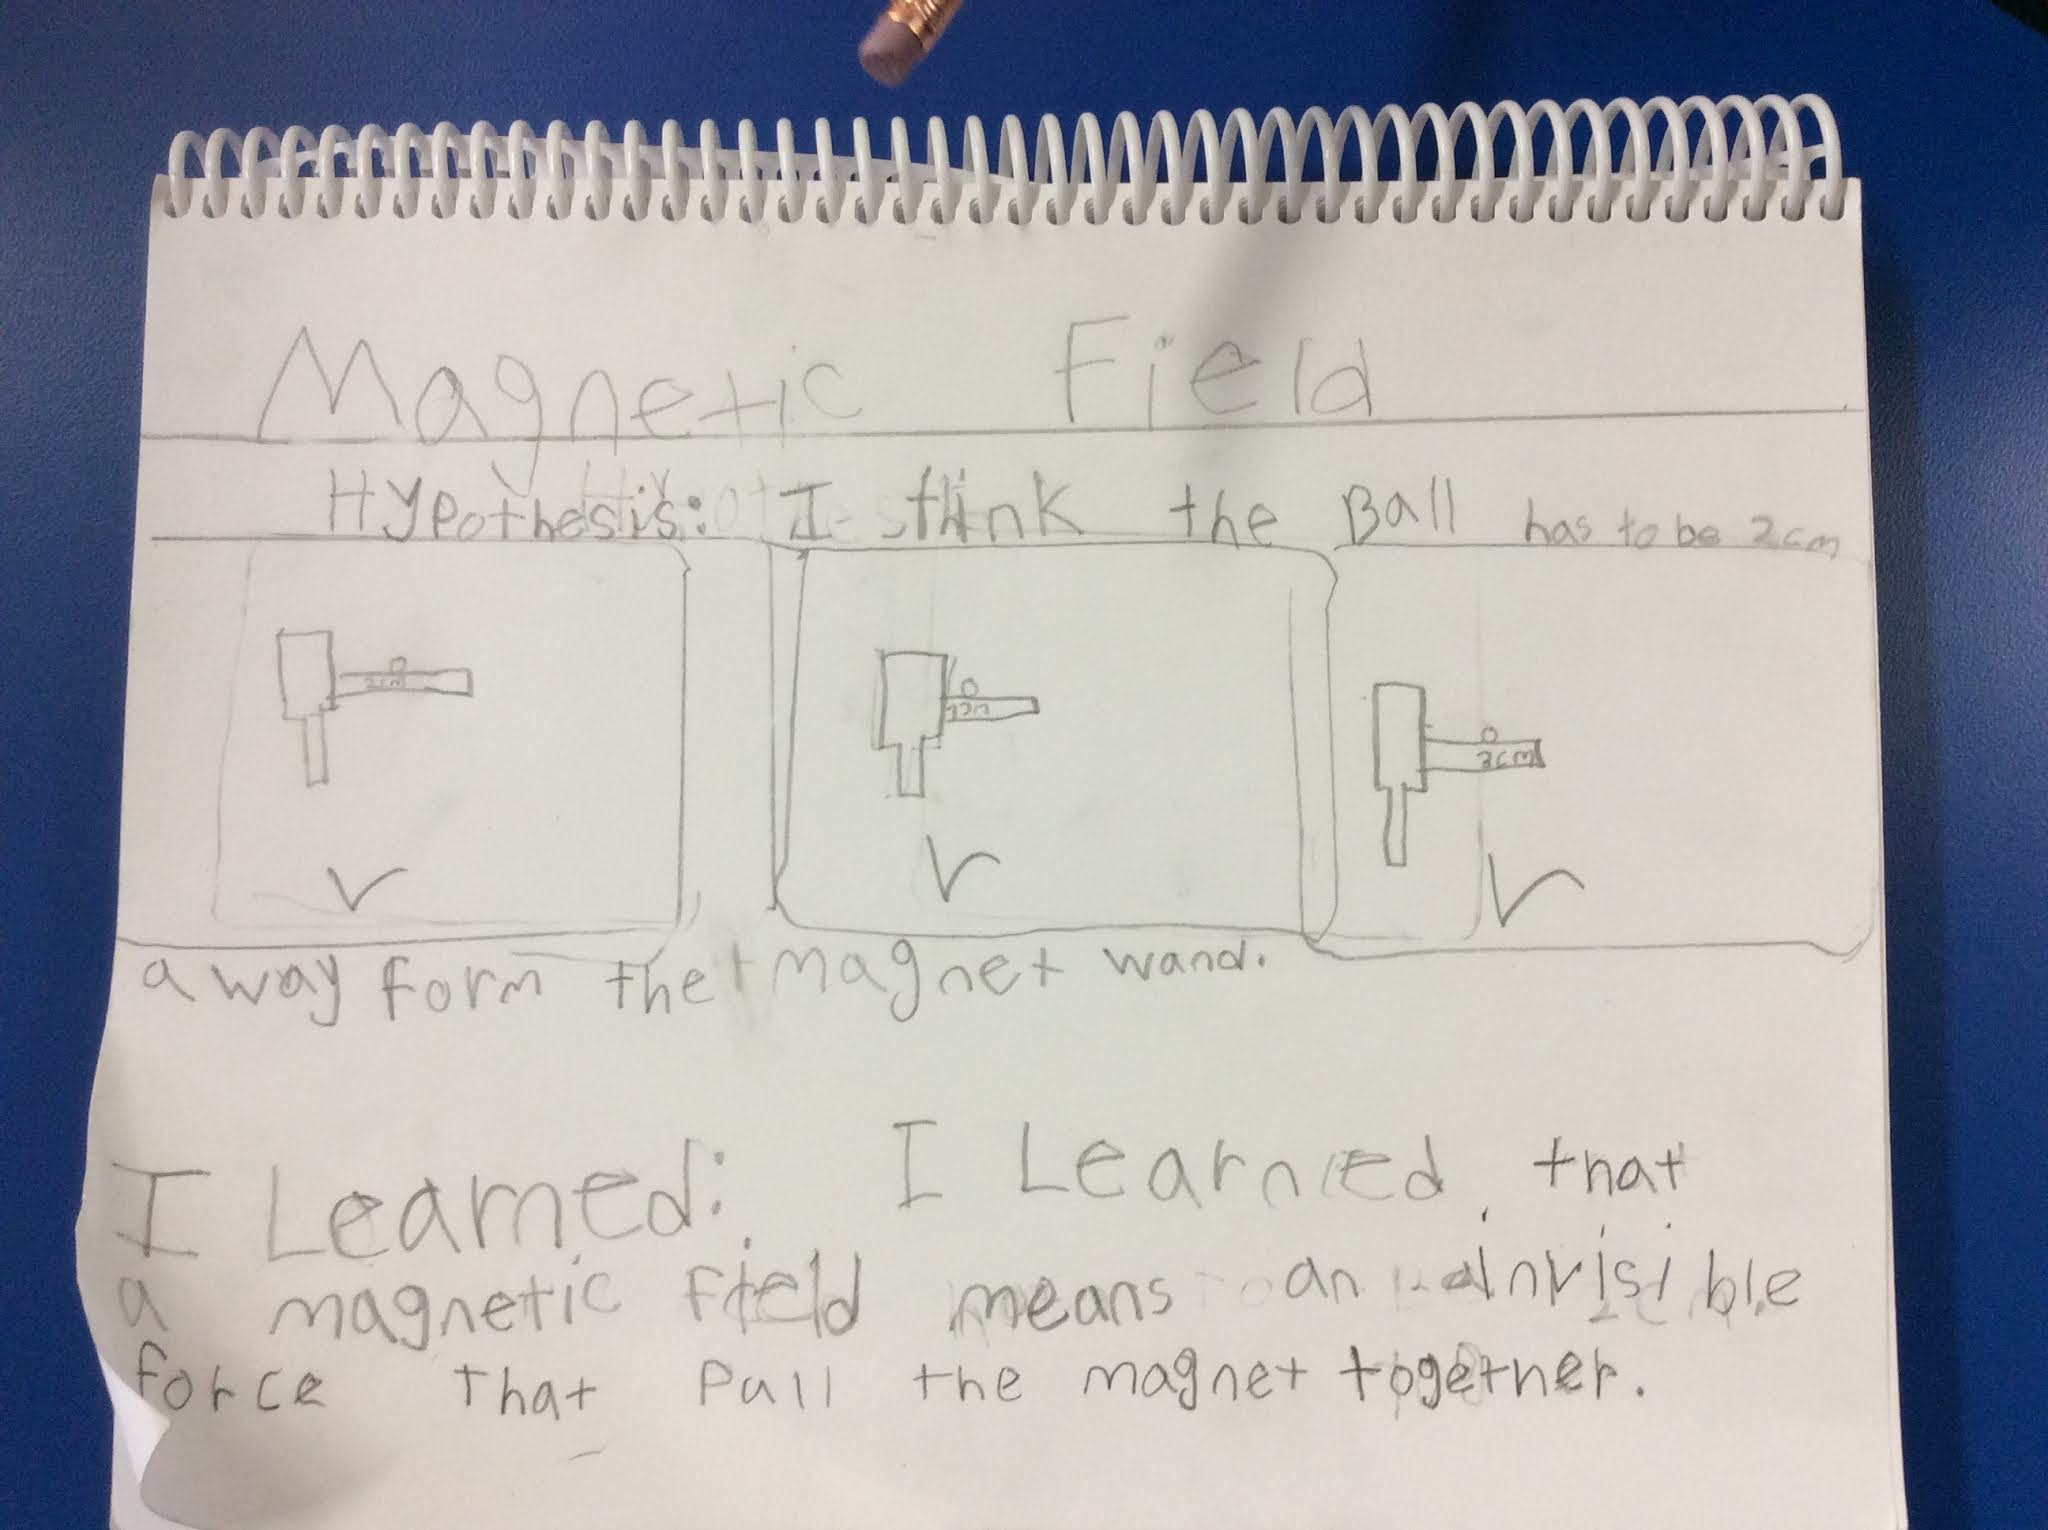 Magnetic Field
Hypothesis: I think the Ball has to be 2cm
2cm
3cm
away form the magnet wand.
I Learned: I Learned that
a magnetic field means an invisible
force that pull the magnet together.